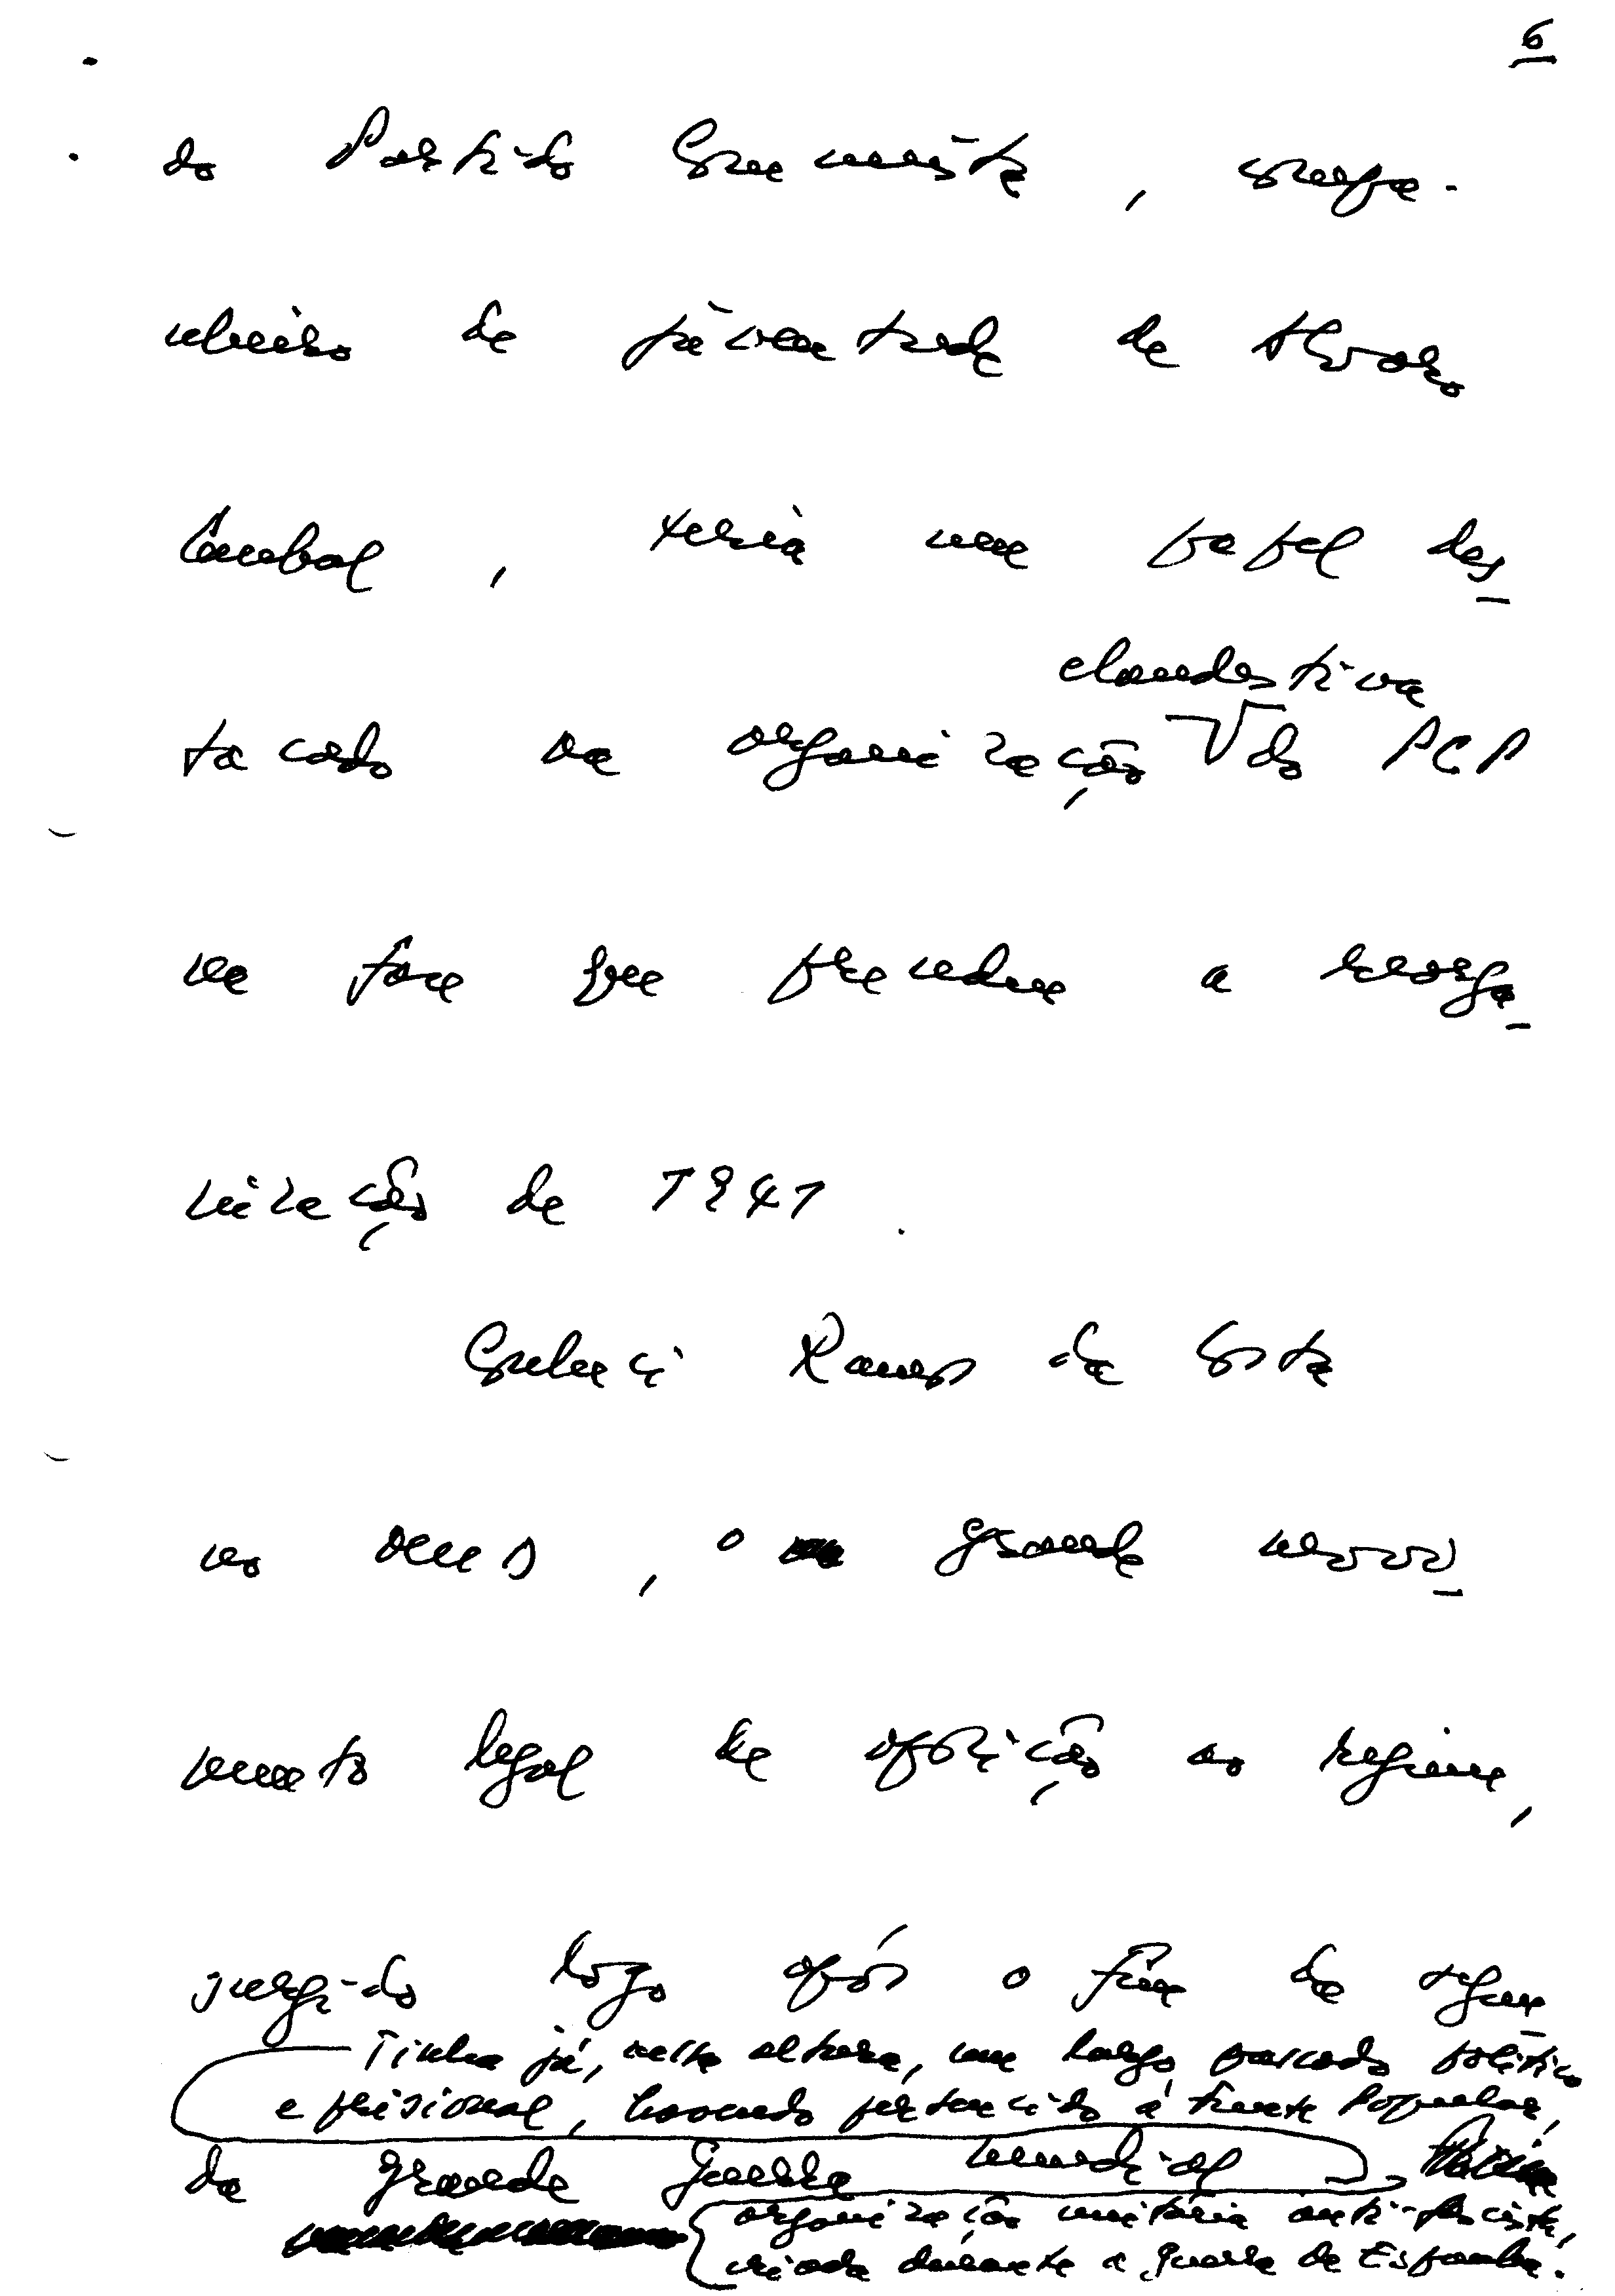 6
do Partido Comunista, compa-
nheiro de juventude de Álvaro
Cunhal, teria um papel des-
clandestina
tacado na organização do PCP
na fase que precedeu a reorga-
nização de 1941.
Conheci Ramos da Costa
no MUD, o grande movi-
mento legal de oposição ao regime,
surgido logo após o fim da segun-
Tinha já, nesta altura, um largo passado político
e prisional, havendo pertencido à Frente Popular,
da grande guerra mundial
organização unitária anti-fascista,
criada durante a guerra de Espanha.